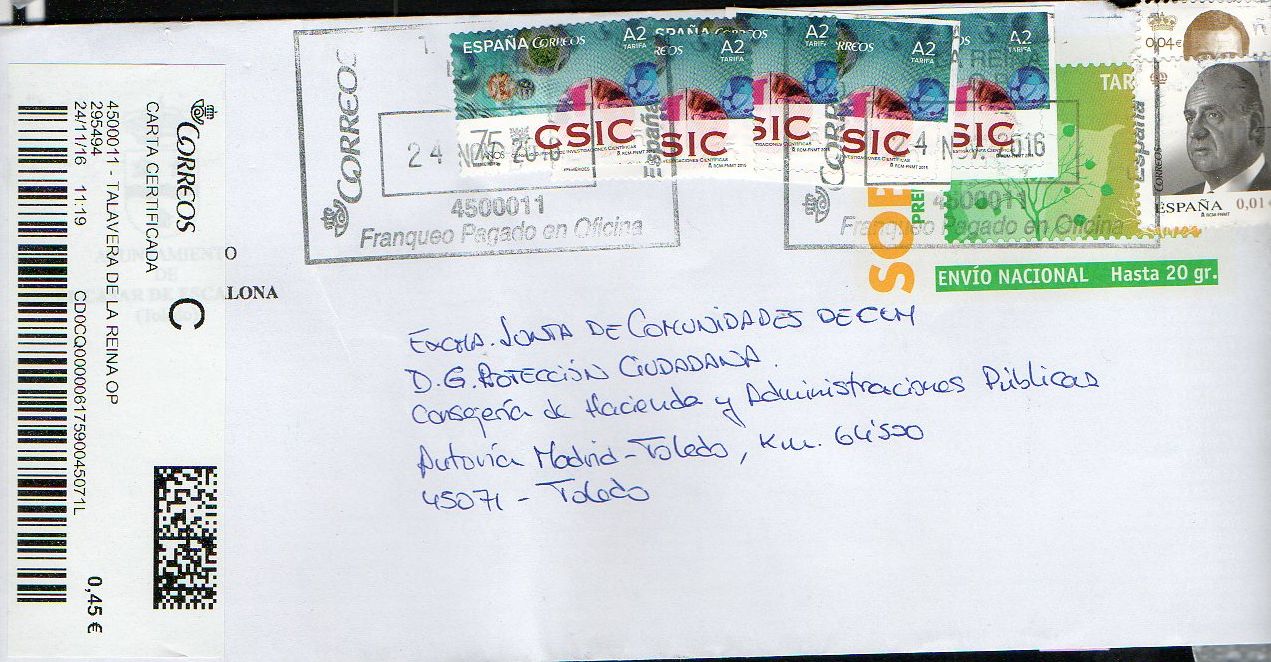 CORREOS
CARTA CERTIFICADA
C
4500011 - TALAVERA DE LA REINA OP
295494
24/11/16 11:19
CD0CQ00000617590045071L
0,45 €
O
LONA
CORREOS
24 NOV. 2016
4500011
Franqueo Pagado en Oficina
ESPAÑA CORREOS A2
TARIFA
75
AÑOS
CSIC
A2
TARIFA
SIC
SIC
A2
TARIFA
SIC
A2
TARIFA
SIC
España
CORREOS
24 NOV. 2016
4500011
Franqueo Pagado en Oficina
0,04 €
TAR
España
CORREOS
ESPAÑA 0,01
SOB
PRE
ENVÍO NACIONAL Hasta 20 gr.
EXCMA. JUNTA DE COMUNIDADES DE CLM
D.G. PROTECCIÓN CIUDADANA.
Consejería de Hacienda y Administraciones Públicas
Autovía Madrid-Toledo, Km. 64'500
45071 - Toledo